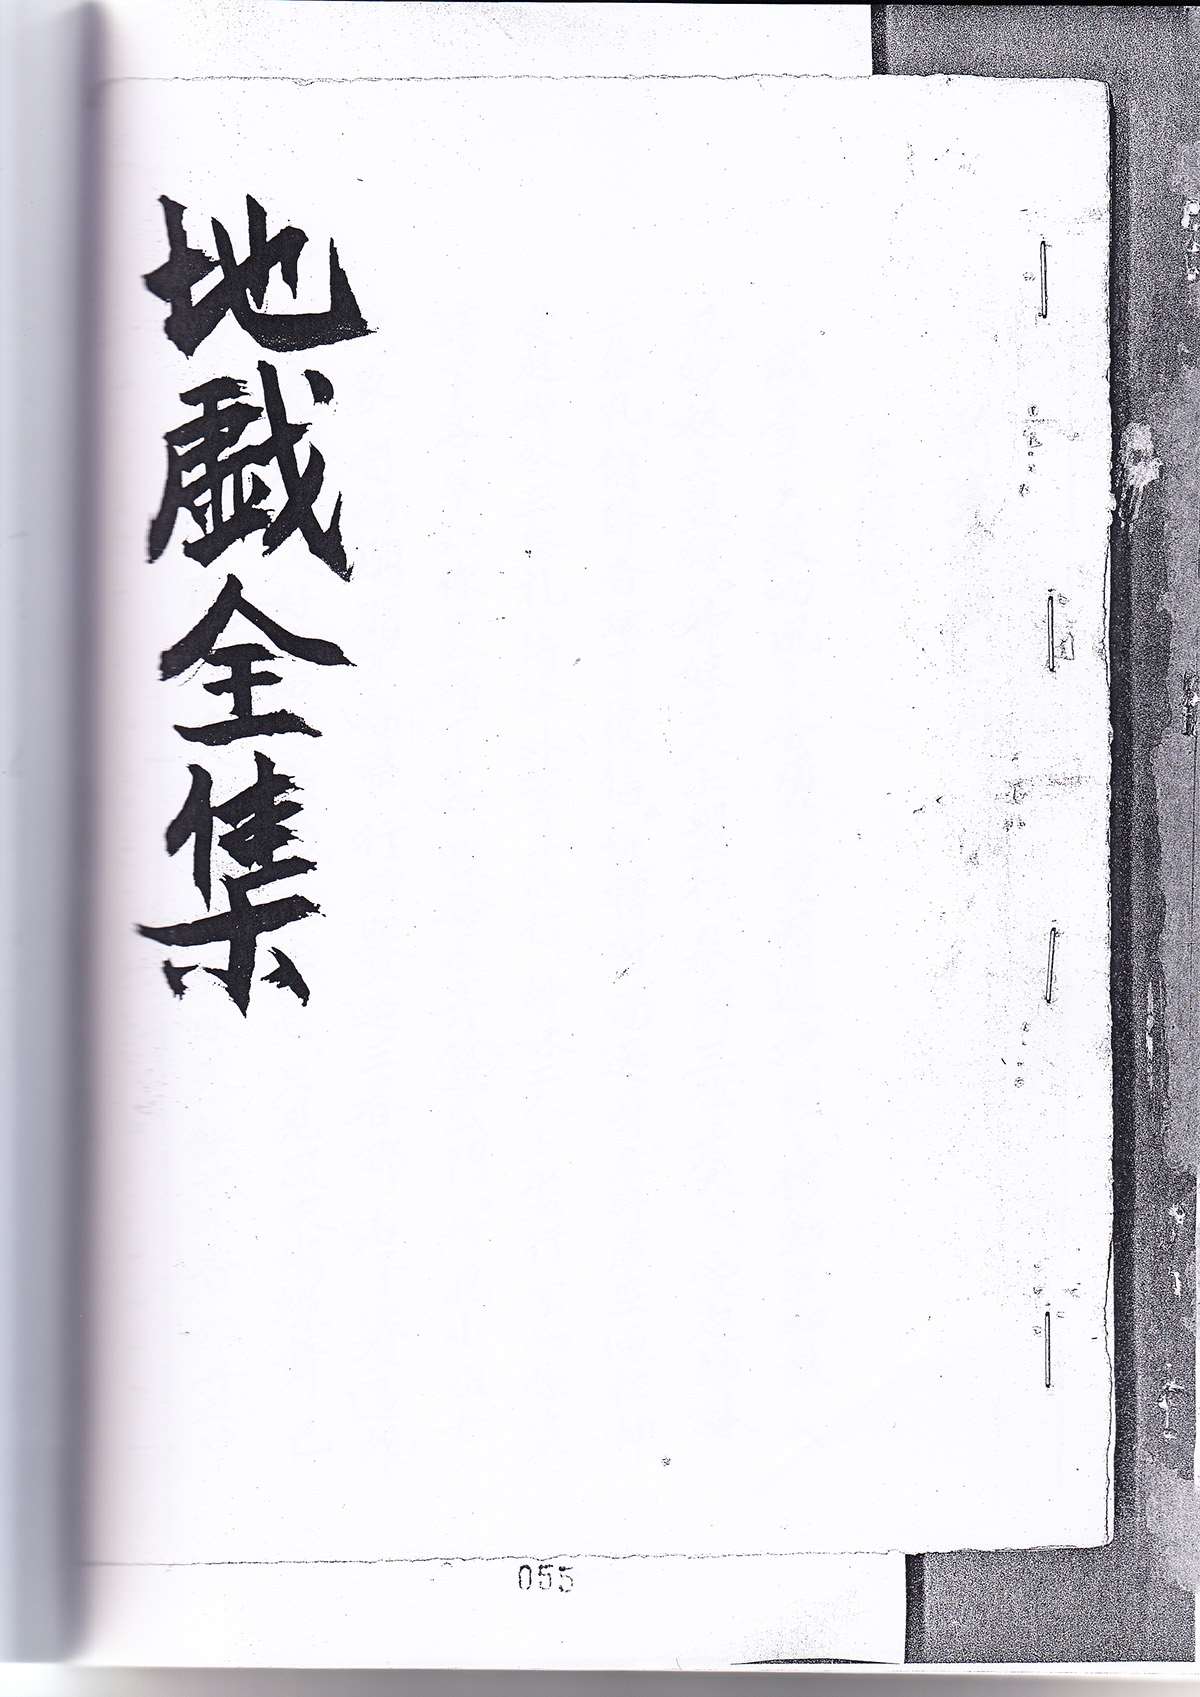 地戯全集
055